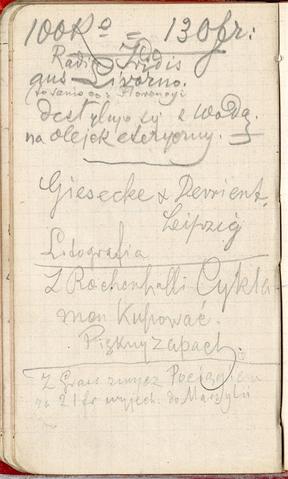 100 Ko = 130 fr.
Radix Iridis
aus Livorno.
(to samo co z Florencyi
destyluje się z wodą
na olejek eteryczny.
Giesecke & Devrient,
Leipzig
Litografia
Z Reichenhalli Cykla
men kupować.
Piękny zapach.
Z Grass
za 21 fr wyjech. do Marsylii